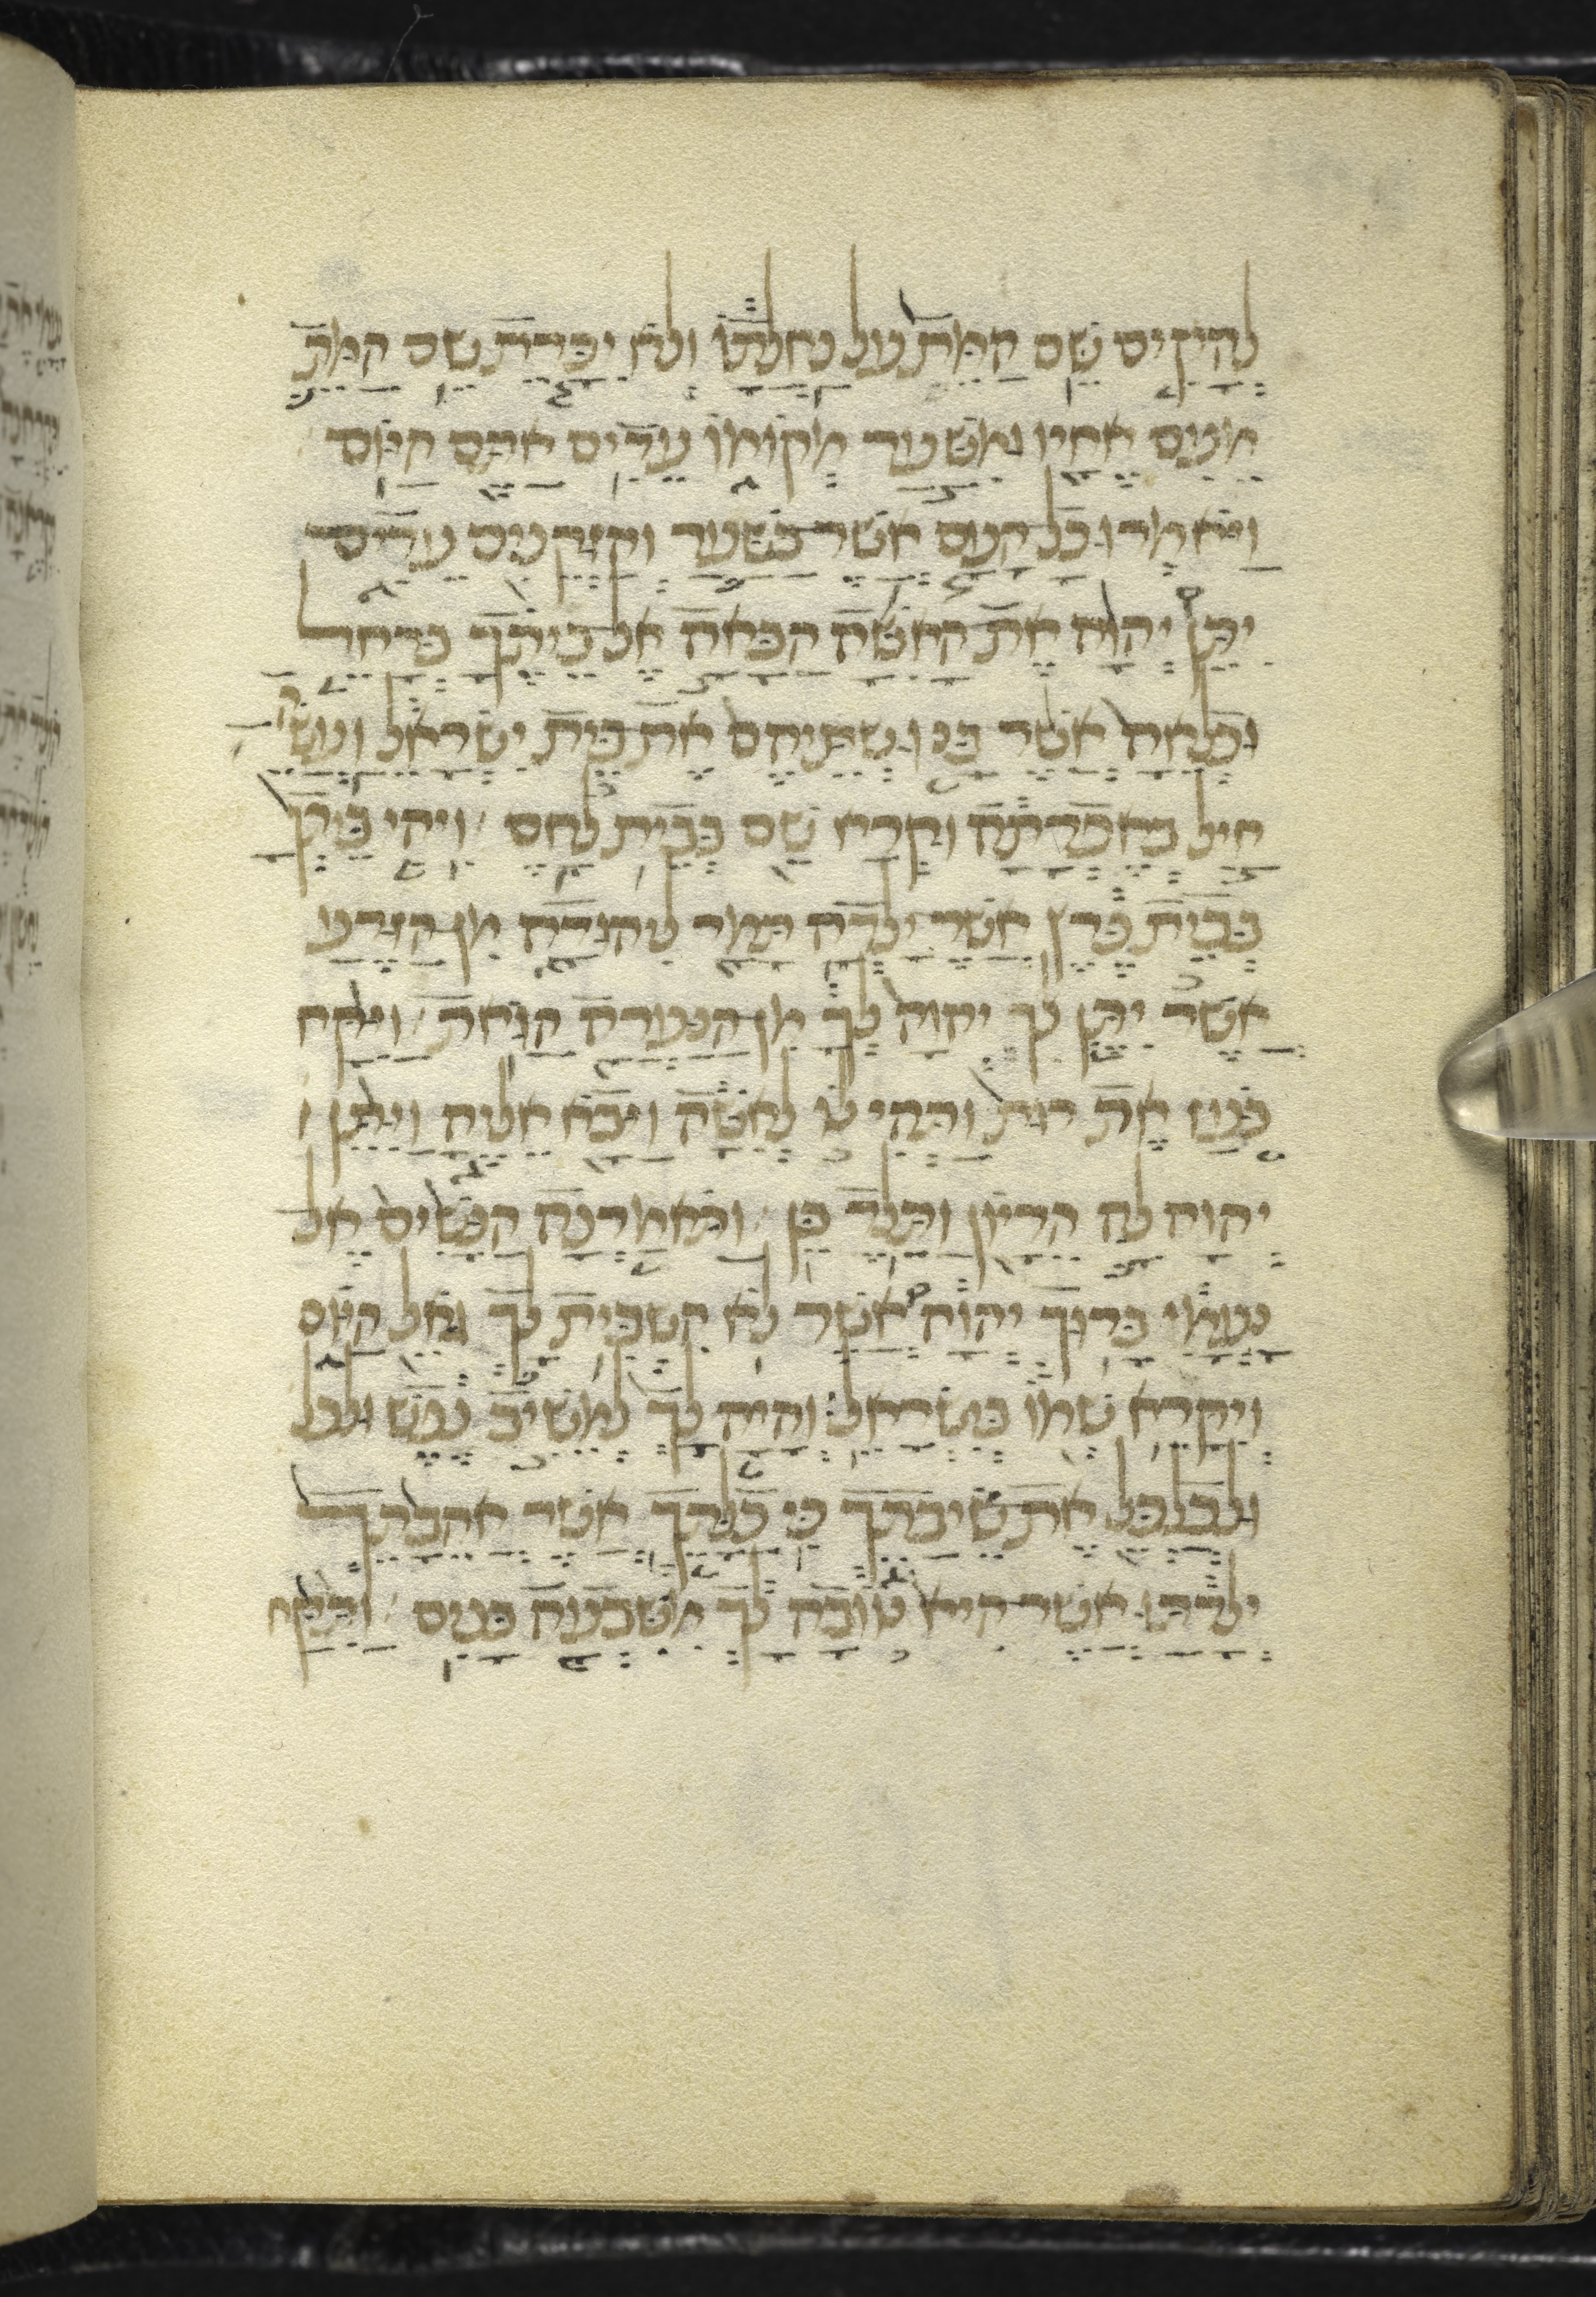 להקים שם המת על נחלתו ולא יכרת שם המת
מעם אחיו ומשער מקומו עדים אתם היום
ויאמרו כל העם אשר בשער והזקנים עדים
יתן יהוה את האשה הבאה אל ביתך כרחל
וכלאה אשר בנו שתיהם את בית ישראל ועשה
חיל באפרתה וקרא שם בבית לחם ויהי ביתך
כבית פרץ אשר ילדה תמר ליהודה מן הזרע
אשר יתן לך יהוה לך מן הנערה הזאת ויקח
בעז את רות ותהי לו לאשה ויבא אליה ויתן
יהוה לה הריון ותלד בן ותאמרנה הנשים אל
נעמי ברוך יהוה אשר לא השבית לך גאל היום
ויקרא שמו בישראל והיה לך למשיב נפש ולכל
ולכלכל את שיבתך כי כלתך אשר אהבתך
ילדתו אשר היא טובה לך משבעה בנים ותקח